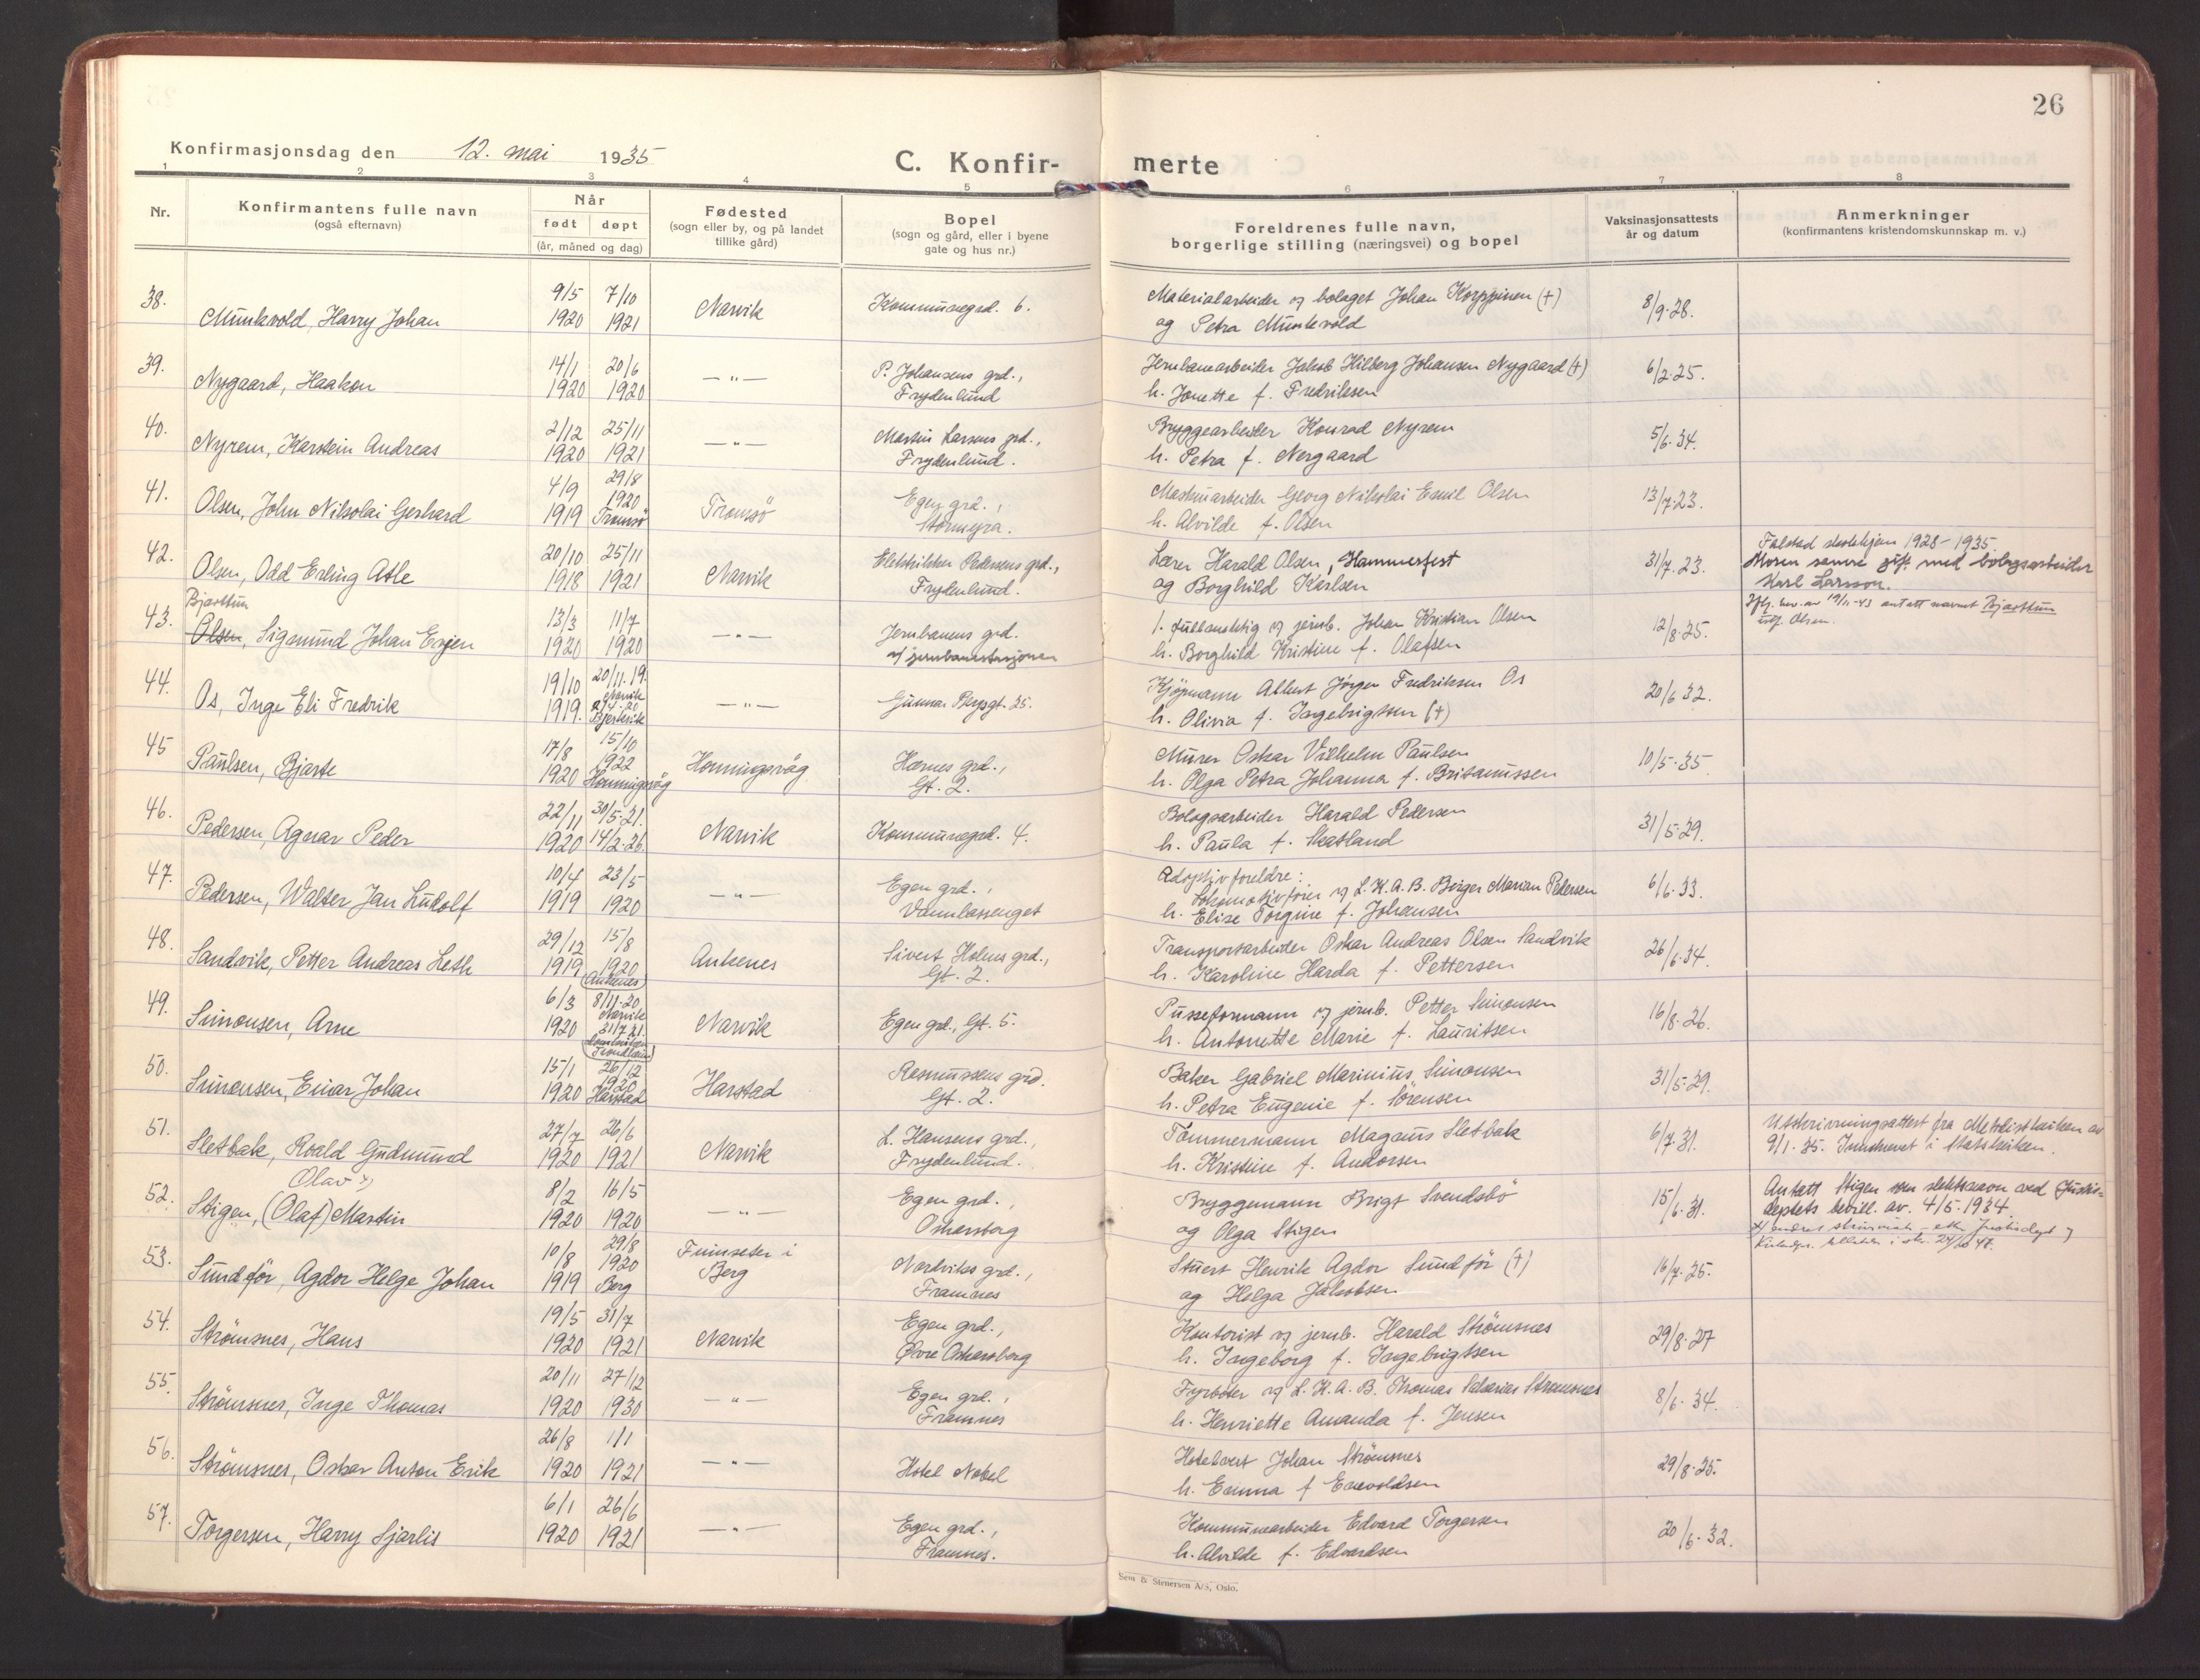 26
Konfirmasjonsdag den 12. mai 1935
C. Konfir- merte
1 2 3 4 5 6 7 8
Nr.
Konfirmantens fulle navn
(også efternavn)
Når
født døpt
(år, måned og dag)
Fødested
(sogn eller by, og på landet
tillike gård)
Bopel
(sogn og gård, eller i byene
gate og hus nr.)
Foreldrenes fulle navn,
borgerlige stilling (næringsvei) og bopel
Vaksinasjonsattests
år og datum
Anmerkninger
(konfirmantens kristendomskunnskap m. v.)
38. 9/5 7/10 Narvik Kommunegrd. 6. Materialarbeider v/ bolaget Johan Korppinen (+) 8/9-28.
Munkvold, Harry Johan 1920 1921 og Petra Munkvold
39. 14/1 20/6 —"— P. Johansens grd., Jernbanearbeider Jakob Hilberg Johansen Nygaard (+) 6/2-25.
Nygaard, Haakon 1920 1920 Frydenlund h. Jonette f. Fredriksen
40. 2/12 25/11 —"— Martin Larsens grd., Bryggearbeider Konrad Nyrem 5/6-34.
Nyrem, Karstein Andreas 1920 1921 Frydenlund. h. Petra f. Nergaard
41. 4/9 29/8 1920 Tromsö Egen grd., Maskinarbeider Georg Nikolai Emil Olsen 13/7-23.
Olsen, John Nikolai Gerhard 1919 Tromsö Stormyra. h. Alvilde f. Olsen
42. 20/10 25/11 Narvik Elektriker Pedersens grd., Lærer Harald Olsen, Hammerfest 31/7-23. Falstad skolehjem 1928-1935
Olsen, Odd Erling Atle 1918 1921 Frydenlund. og Borghild Karlsen Moren senere gift med bolagsarbeider
Karl Larsson.
Bjarttun
43. 13/3 11/7 —"— Jernbanens grd. 1. fullmektig v/ jernb. Johan Kristian Olsen 12/8-25. Iflg. bev. av 19/11-43 antatt navnet Bjarttun
Olsen, Sigmund Johan Ersjen 1920 1920 v/ jernbanestasjonen h. Borghild Kristine f. Olafsen istf. Olsen.
44. 19/10 20/11-19. Narvik —"— Gunnar Bergsgt. 35. Kjöpmann Albert Jörgen Fredriksen Os 20/6-32.
Os, Inge Eli Fredrik 1919. Bjerkvik h. Olivia f. Ingebrigtsen (+)
45 17/8 15/10 1922 Honningsvåg Hærnes grd., Murer Oskar Vilhelm Paulsen 10/5-35
Paulsen, Bjarte 1920 Honningsvåg Gt. 2. h. Olga Petra Johanna f. Britanussen
46. 22/11 30/5-21. Narvik Kommunegrd. 4. Bolagsarbeider Harald Pedersen 31/5-29.
Pedersen, Agnar Peder 1920 14/2-26. h. Paula f. Skatland
47. 10/4 23/5 —"— Egen grd., Adoptivforeldre: 6/6-33.
Pedersen, Walter Jan Ludolf 1919 1920 Vannbassenget Lokomotivfører v/ L.K.A.B. Börger Marian Pedersen
h. Elise Torgine f. Johansen
48. 29/12 15/8 Ankenes Sivert Holms grd., Transportarbeider Oskar Andreas Olsen Sandvik 26/6-34.
Sandvik, Petter Andreas Leth 1919 1920 (Ankenes) Gt. 2. h. Karoline Harda f. Pettersen
49. 6/3 8/11-20. Narvik Narvik Egen grd., Gt. 5. Pusseformann v/ jernb. Petter Simonsen 16/8-26.
Simonsen, Arne 1920 31/7 21. h. Antonette Marie f. Lauritsen
50. 15/1 26/12 1920 Harstad Rasmussens grd. Baker Gabriel Marinius Simonsen 31/5-29.
Simonsen, Einar Johan 1920 Harstad Gt. 2. h. Petra Eugenie f. Sörensen
51. 27/7 26/6 Narvik L. Hansens grd., Tömmermann Magnus Sletbak 6/7-31. Utskrivningsattest fra Metodistkirken av
Sletbak, Roald Gudmund 1920 1921 Frydenlund. h. Kristine f. Andorsen 9/1-35. Innskrevet i Statskirken.
Olav x)
52. 8/2 16/5 —"— Egen grd., Bryggemann Brigt Svendsbö 15/6-31. Antatt Stigen som slektsnavn ved Justis=
Stigen, (Olaf) Martin 1920 1920 Oskarsborg og Olga Stigen deptets bevill. av. 4/5-1934.
53. 10/8 29/8 1920 Finnseter i Nordviks grd., Stuert Henrik Agdor Sundför (+) 16/7-25.
Sundför, Agdor Helge Johan 1919 Berg Berg Framnes og Helga Jakobsen
54. 19/5 31/7 Narvik Egen grd., Kontorist v/ jernb. Harald Strömsnes 29/8-27
Strömsnes, Hans 1920 1921 Øvre Oskarsborg h. Ingeborg f. Ingebrigtsen
55. 20/11 27/12 —"— Egen grd., Fyrböter v/ L.K.A.B. Thomas Sakarias Strömsnes 8/6-34.
Strömsnes, Inge Thomas 1920 1930 Framnes h. Henriette Amanda f. Jensen
56. 26/8 1/1 —"— Hotel Nobel Hotelvert Johan Strömsnes 29/8-25.
Strömsnes, Oskar Anton Erik 1920 1921 h. Emma f. Enevoldsen
57. 6/1 26/6 —"— Egen grd., Kommunearbeider Edvard Torgersen 20/6-32.
Torgersen, Harry Hjarlis 1920 1921 Framnes. h. Alvilde f. Edvardsen
Sem & Stenersen A/S, Oslo.